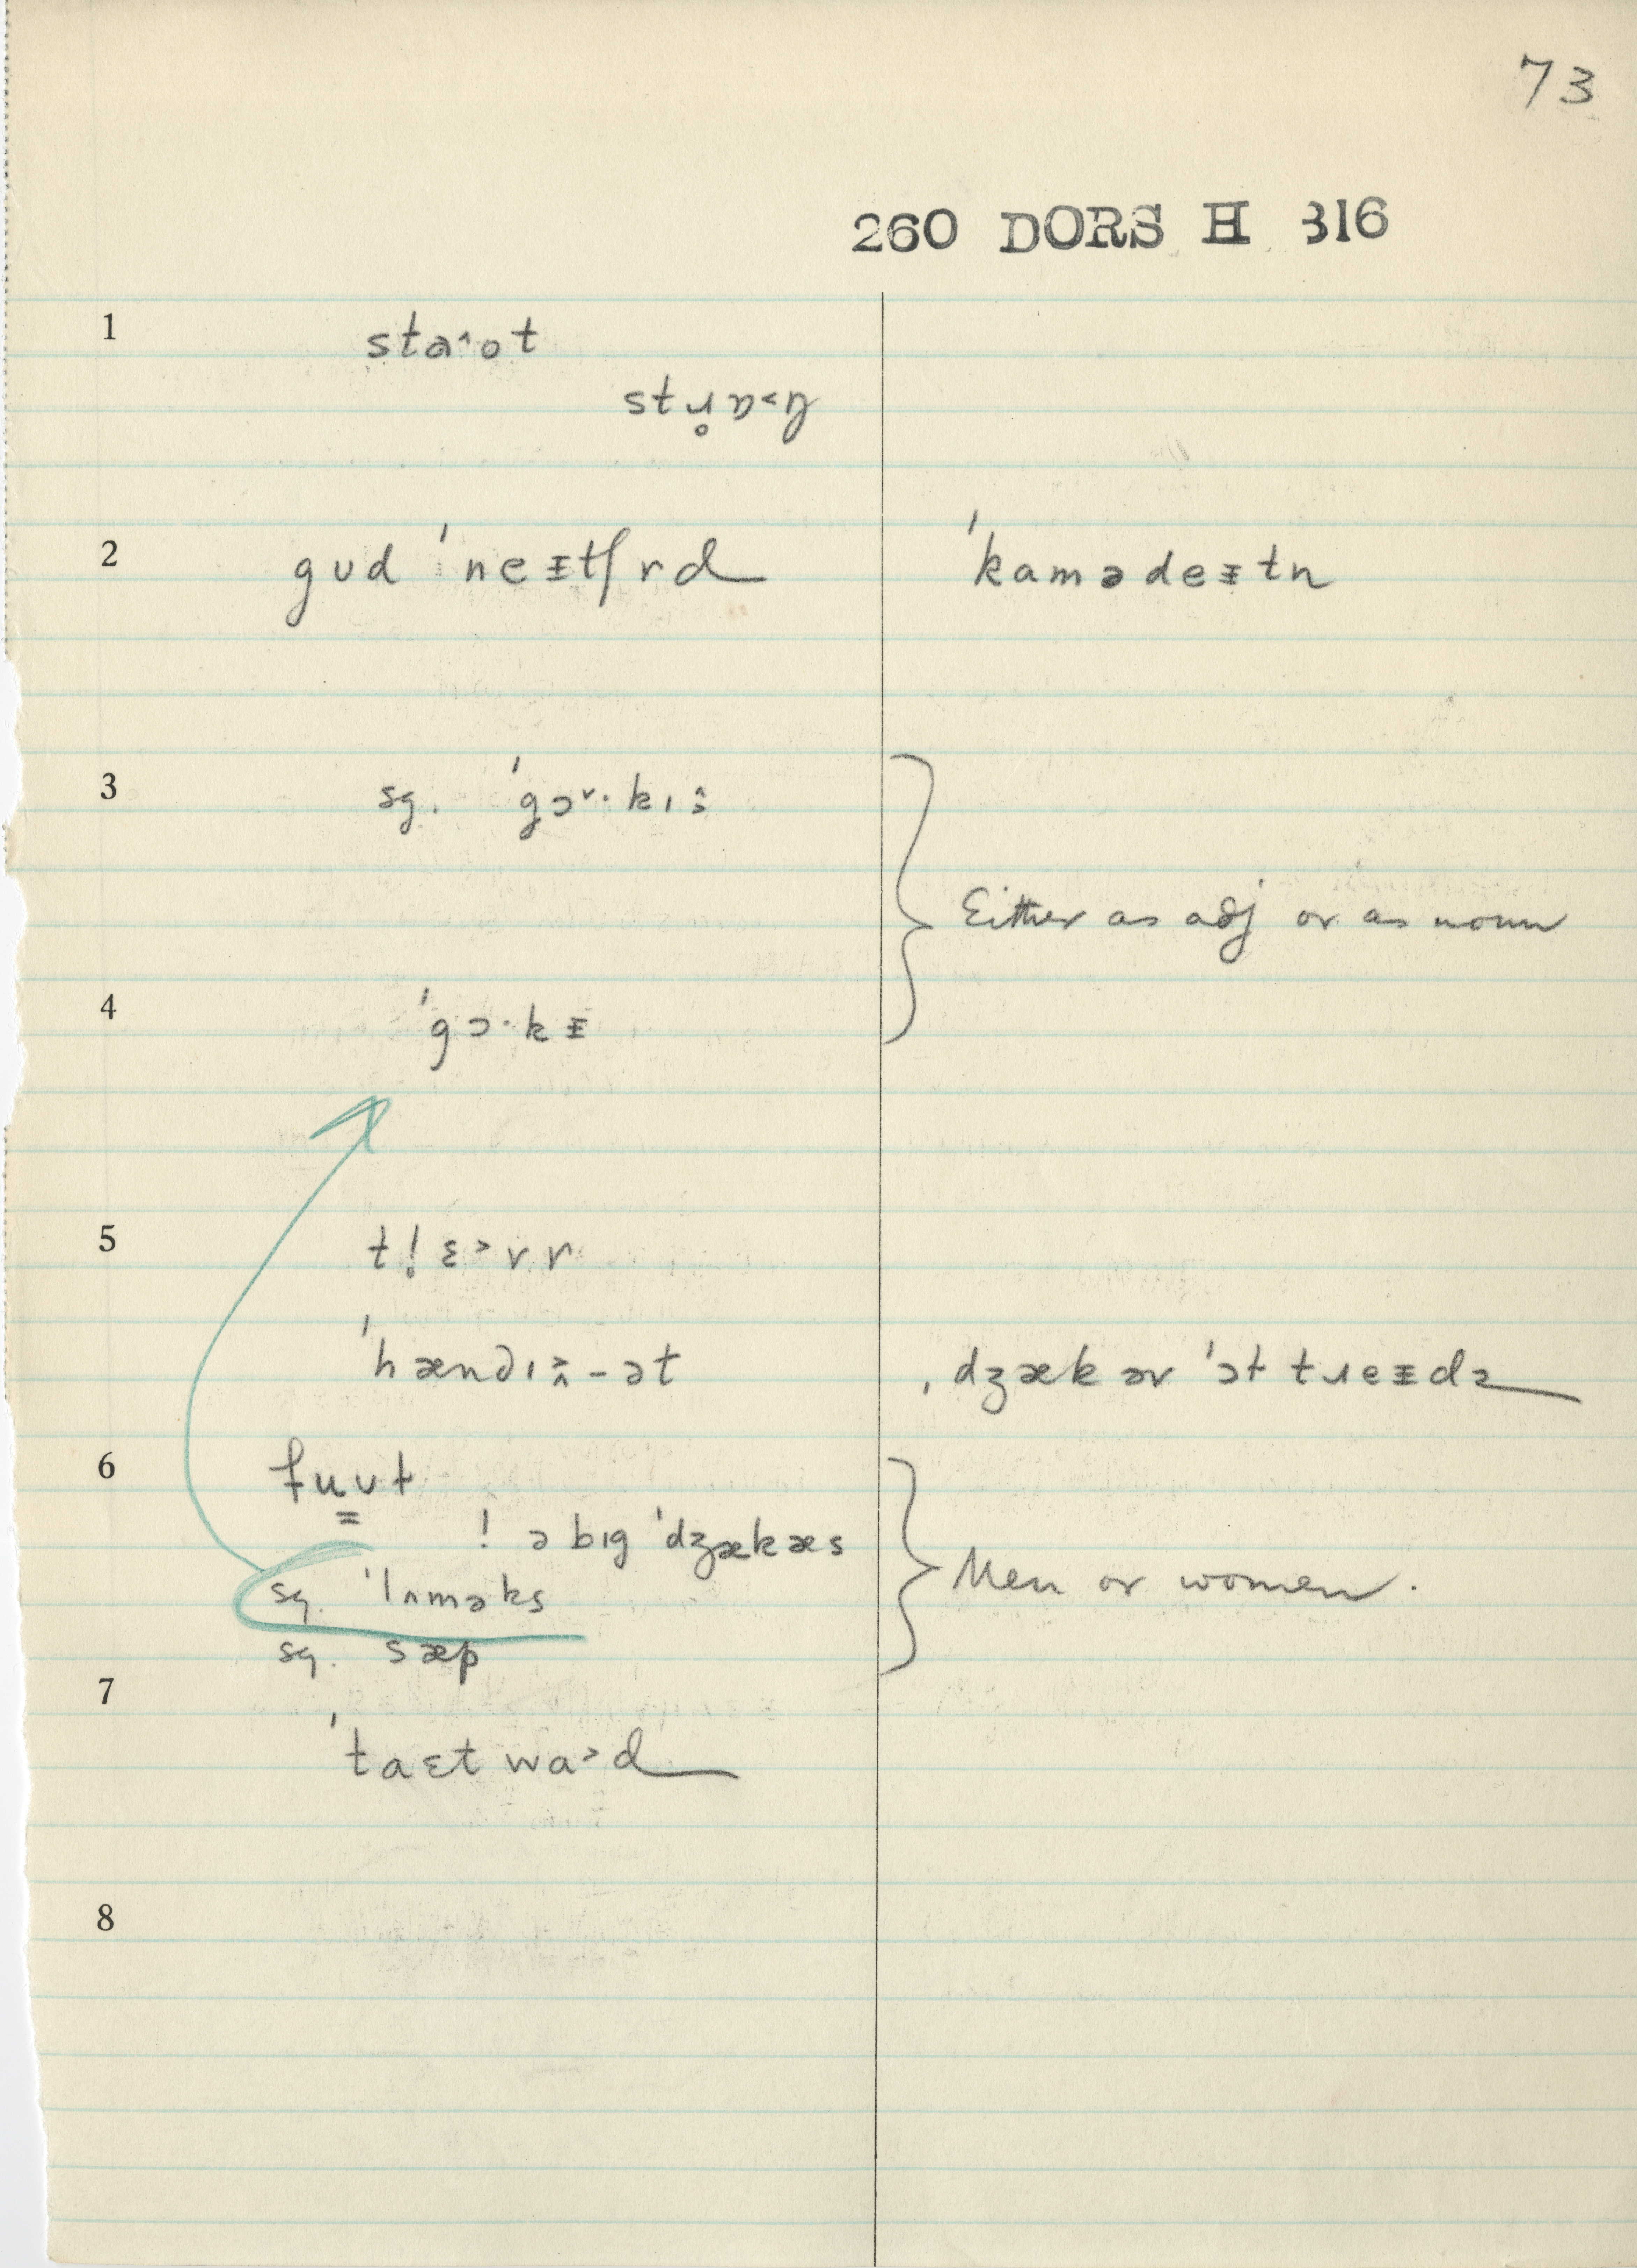 73
260 DORS H 316
1 sta˄ot
stɹ̥ɒ˂ŋ
2 gud ˈneᵻtʃrd ˈkamədeᵻtn
3 sg. ˈgɔ˅·kɪ
Either as adj or as noun
4 ˈgɔ·kᵻ
5 t!ɛ˃rr
ˈhændɪ-ət ˌdʒækərˈɔttɹeᵻdɚ
6 fuʊt
! ə bɪg ˈdʒækæs
sg. ˈlʌməks Men or women.
sg. sæp
7
ˈtaɛtwa˃d
8